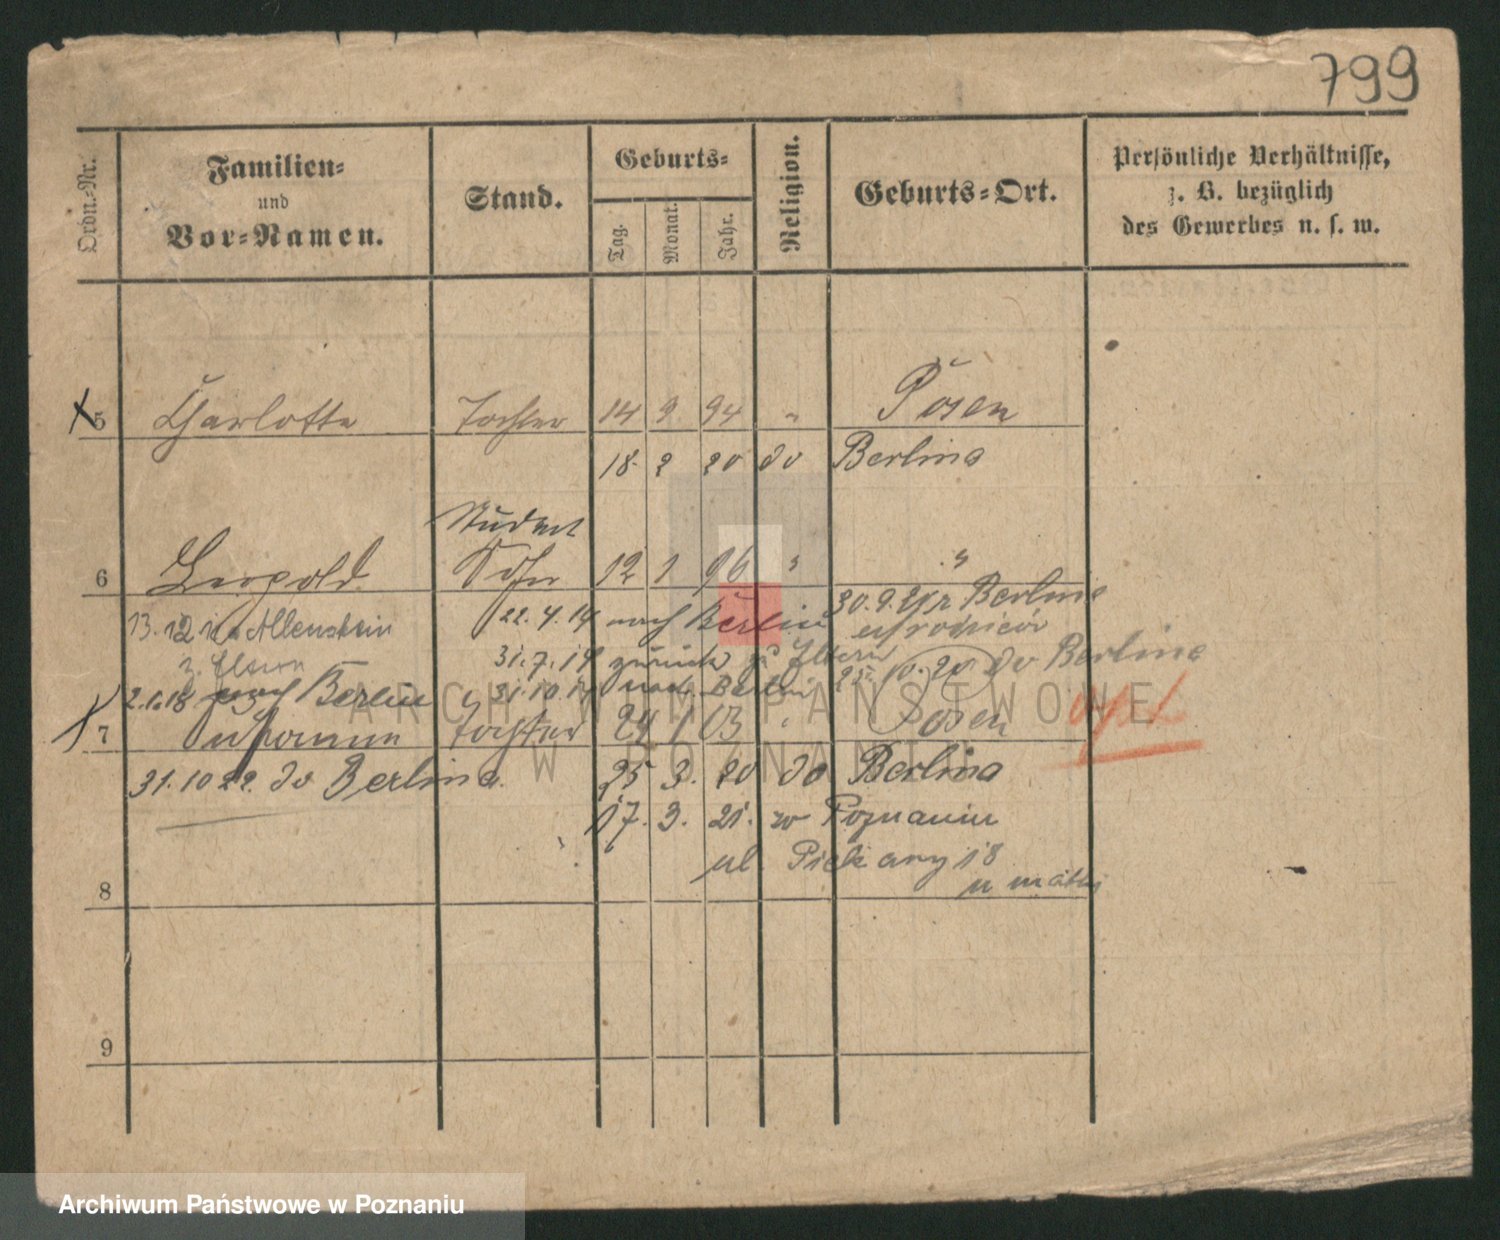 799
Ordn.-Nr.
Familien-
und
Vor-Namen.
Stand.
Geburts-
Tag.
Monat.
Jahr.
Religion.
Geburts-Ort.
Persönliche Verhältnisse,
z. B. bezüglich
des Gewerbes u. s. w.
5 Charlotte Tochter 14 9 94 " Posen
18. 2 20 do Berlina
Student
6 Leopold Sohn 12 1 96 " "
13. 12 in Allenstein 22. 4. 14 nach Berlin 30. 9. Berlina
z. Eltern 31. 7. 14 zurück zu Eltern
25. 10. 20 do Berlina
2. 1. 18 nach Berlin 31. 10. nach Berlin
7 Tochter 24 1 03 " Posen
31. 10 22. do Berlina. 25 3. 20 do Berlina
17. 3. 21. w Poznaniu
ul. Piekary 18
u matki
8
9
ARCHIWUM PAŃSTWOWE
W POZNANIU
Archiwum Państwowe w Poznaniu